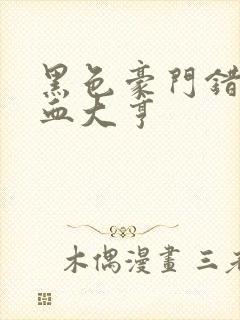 黑色豪門錯
血大亨
木偶漫畫 三